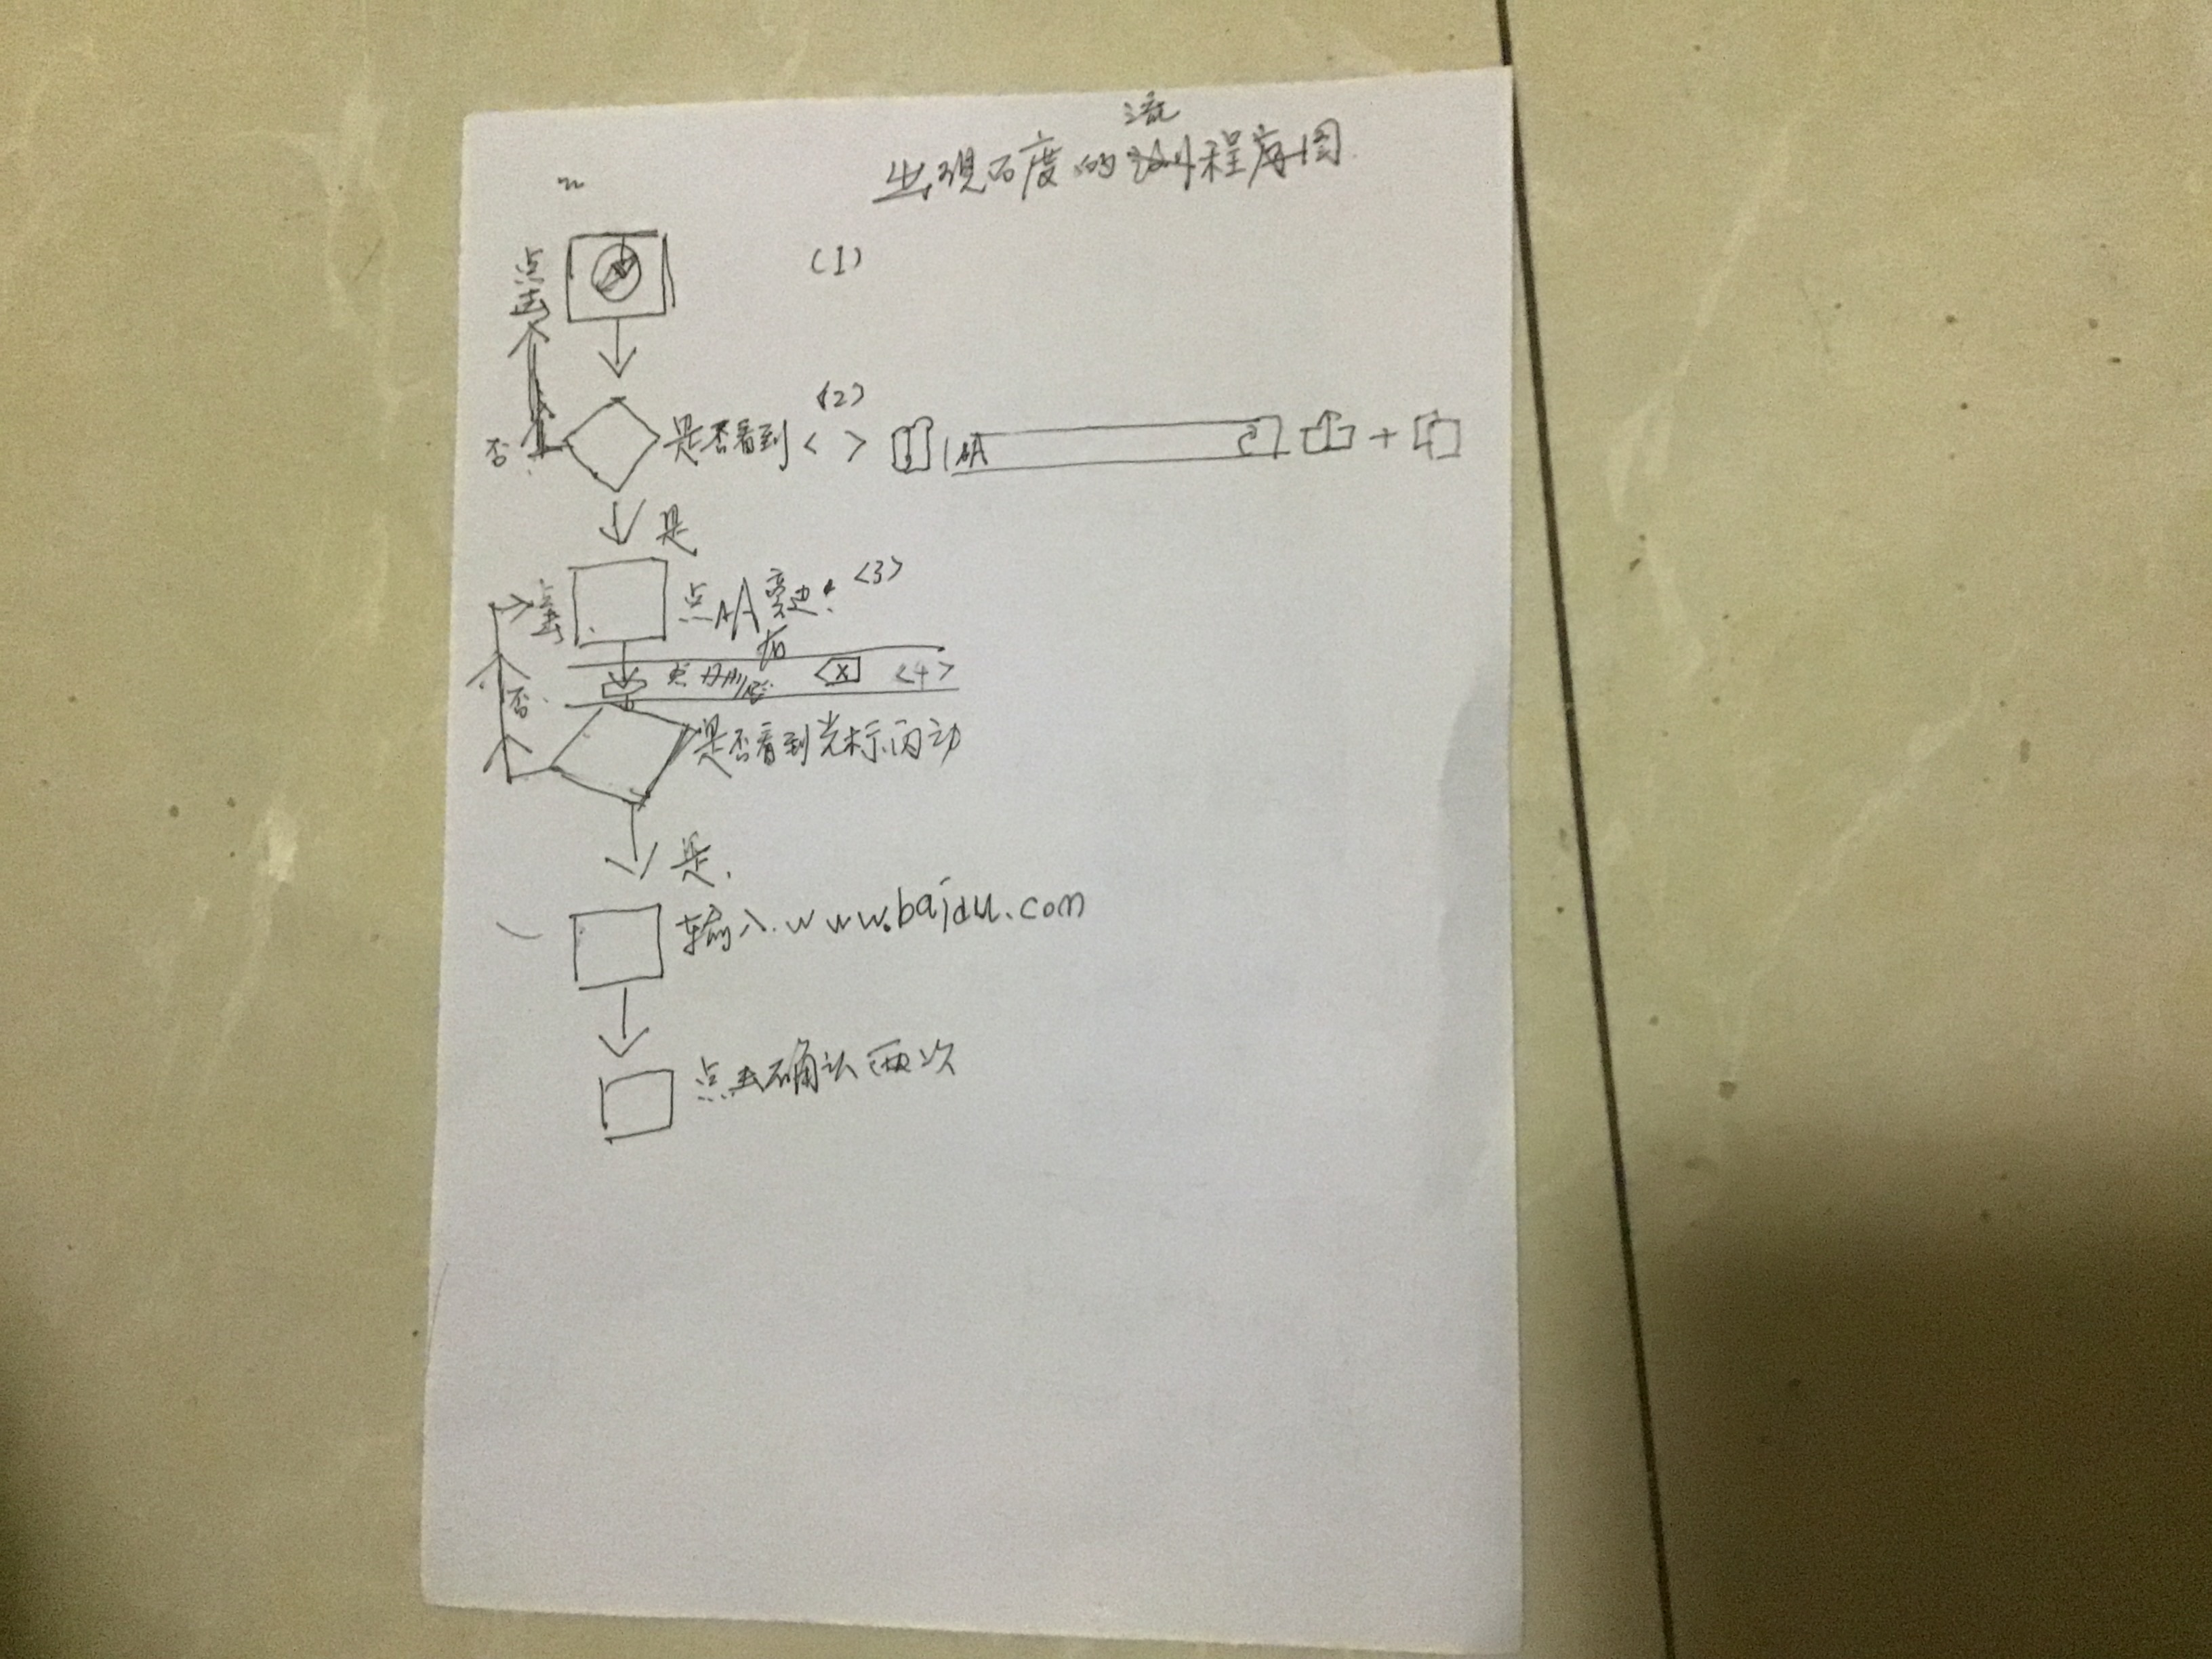 流
出现百度的程图
点击
(1)
(2)
否 是否看到 < > AA +
是
<3>
点击 点AA旁边
右
点删除 X <4>
否
是否看到光标闪动
是.
输入.www.baidu.com
点击确认两次